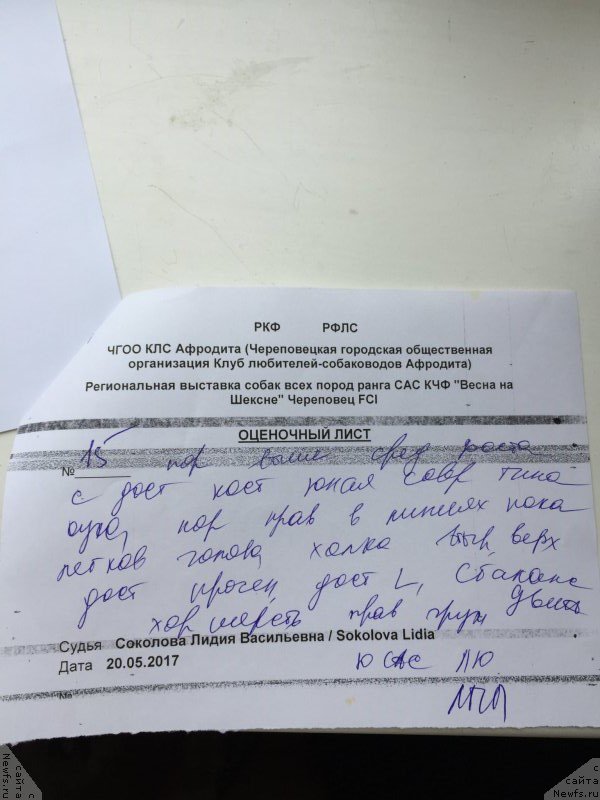 РКФ РФЛС
ЧГОО КЛС Афродита (Череповецкая городская общественная
организация Клуб любителей-собаководов Афродита)
Региональная выставка собак всех пород ранга САС КЧФ "Весна на
Шексне" Череповец FCI
ОЦЕНОЧНЫЙ ЛИСТ
№ 15 пор выше сред роста
с дост кост юная совр типа
сука, пор прав в линиях пока
легков голова, холка выр, верх
дост прочен, дост L, сбаланс
хор шерсть прав груди движ
Судья Соколова Лидия Васильевна / Sokolova Lidia
Дата 20.05.2017
ЮСАС ЛЮ
№
с
сайта
Newfs.ru
с
сайта
Newfs.ru